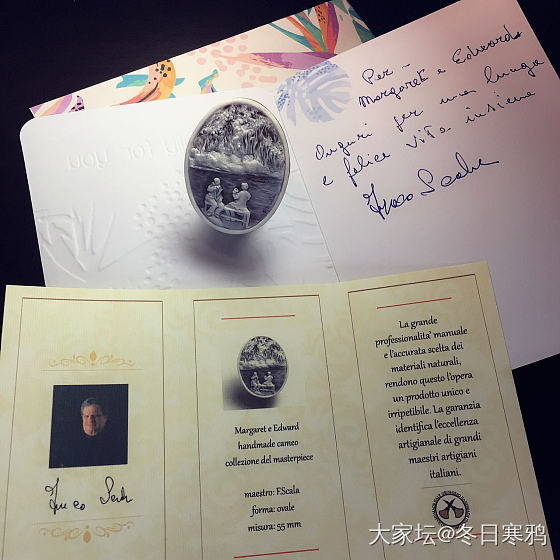 Per -
Margaret e Edward
Auguri per una lunga
e felice vita insieme
for you
Margaret e Edward
handmade cameo
collezione del masterpiece
maestro: F.Scala
forma: ovale
misura: 55 mm
La grande
professionalita' manuale
e l'accurata scelta dei
materiali naturali,
rendono questo l'opera
un prodotto unico e
irripetibile. La garanzia
identifica l'eccellenza
artigianale di grandi
maestri artigiani
italiani.
大家坛@冬日寒鸦